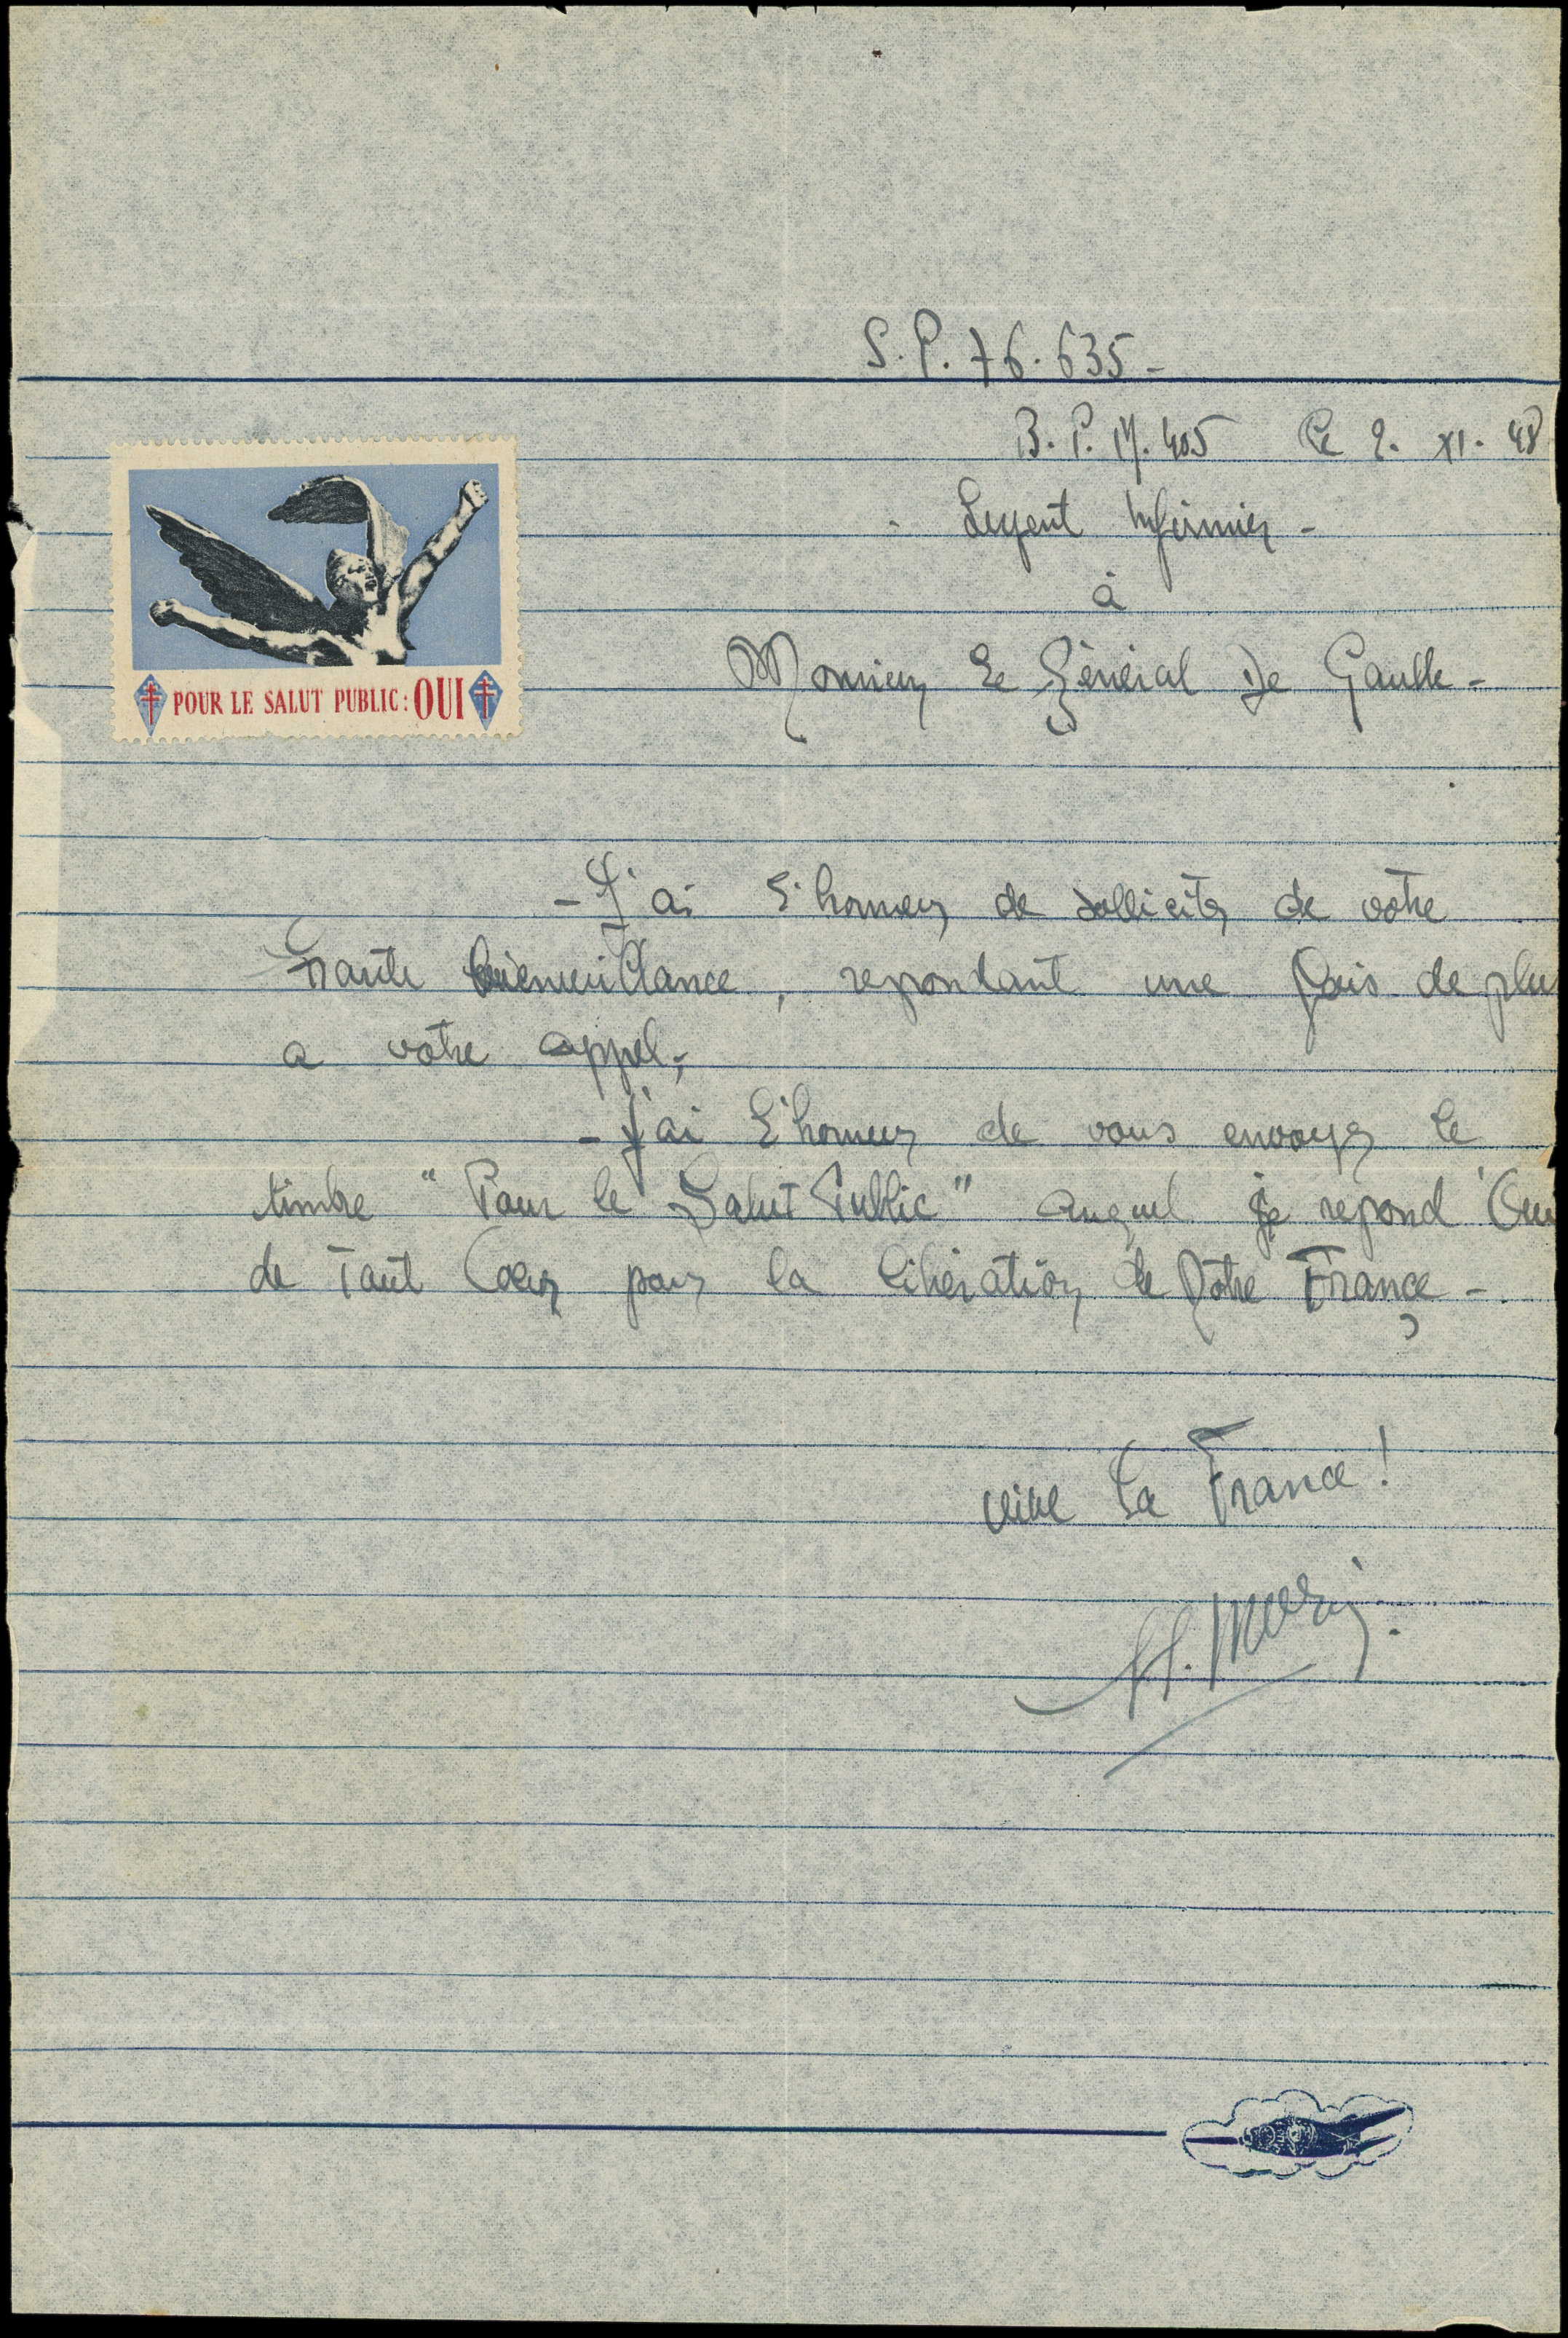 S.P. 76.635-
B.P.M. 405 Le 2. XI. 48
Sergent Infirmier -
à
Monsieur le Général De Gaulle -
POUR LE SALUT PUBLIC : OUI
- J'ai l'honneur de solliciter de votre
haute bienveillance, repondant une fois de plus
a votre appel,
- j'ai l'honneur de vous envoyer le
timbre "Pour le Salut Public" auquel je repond "Oui
de Tout Cœur pour la libération de Nôtre France -
vive la France !